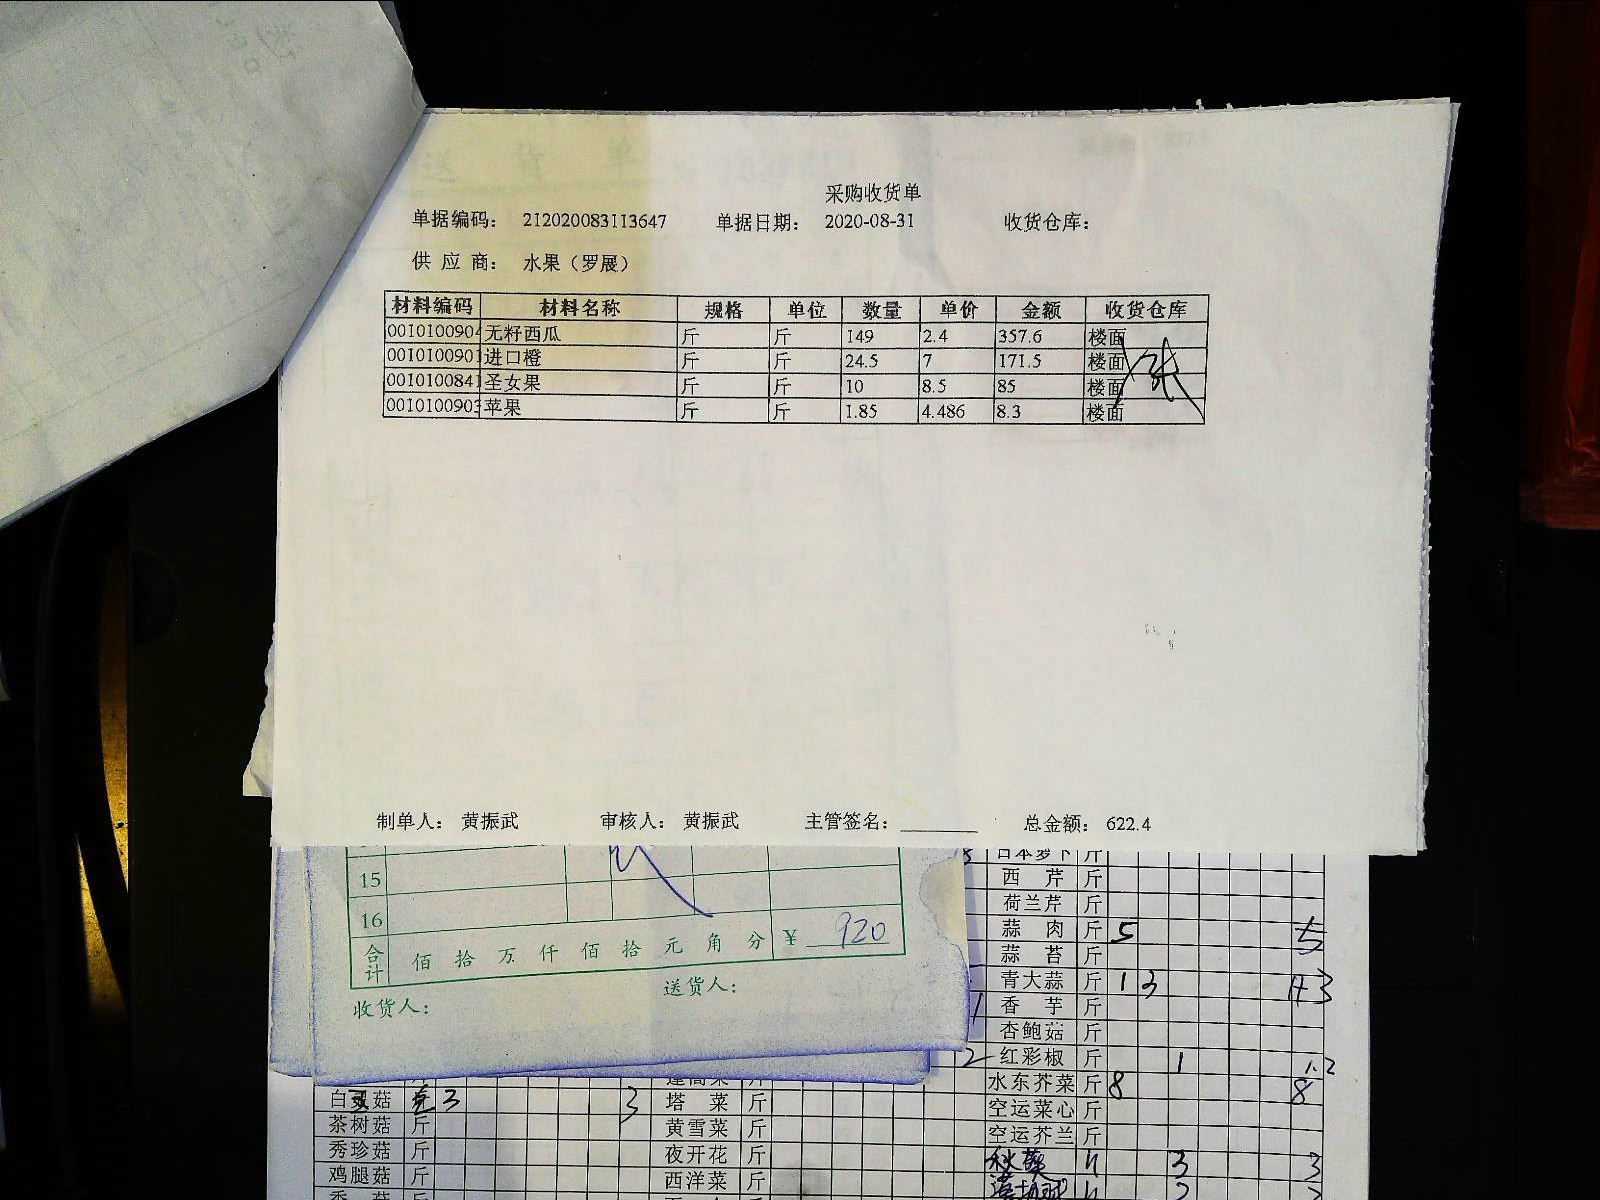 采购收货单
单据编码： 212020083113647 单据日期： 2020-08-31 收货仓库：
供 应 商： 水果（罗展）
材料编码 材料名称 规格 单位 数量 单价 金额 收货仓库
0010100904 无籽西瓜 斤 斤 149 2.4 357.6 楼面
0010100901 进口橙 斤 斤 24.5 7 171.5 楼面
0010100841 圣女果 斤 斤 10 8.5 85 楼面
0010100903 苹果 斤 斤 1.85 4.486 8.3 楼面
制单人： 黄振武 审核人： 黄振武 主管签名： 总金额： 622.4
15
16
合计 佰 拾 万 仟 佰 拾 元 角 分 ¥ 920
收货人： 送货人：
日本萝卜 斤
西 芹 斤
荷兰芹 斤
蒜 肉 斤 5 5
蒜 苔 斤
青大蒜 斤 1 3 1+3
香 芋 斤
杏鲍菇 斤
红彩椒 斤 1 1.2
水东芥菜 斤 8 8
空运菜心 斤
空运芥兰 斤
秋葵 3 3
白灵菇 3 3
茶树菇 斤
秀珍菇 斤
鸡腿菇 斤
塔 菜 斤
黄雪菜 斤
夜开花 斤
西洋菜 斤